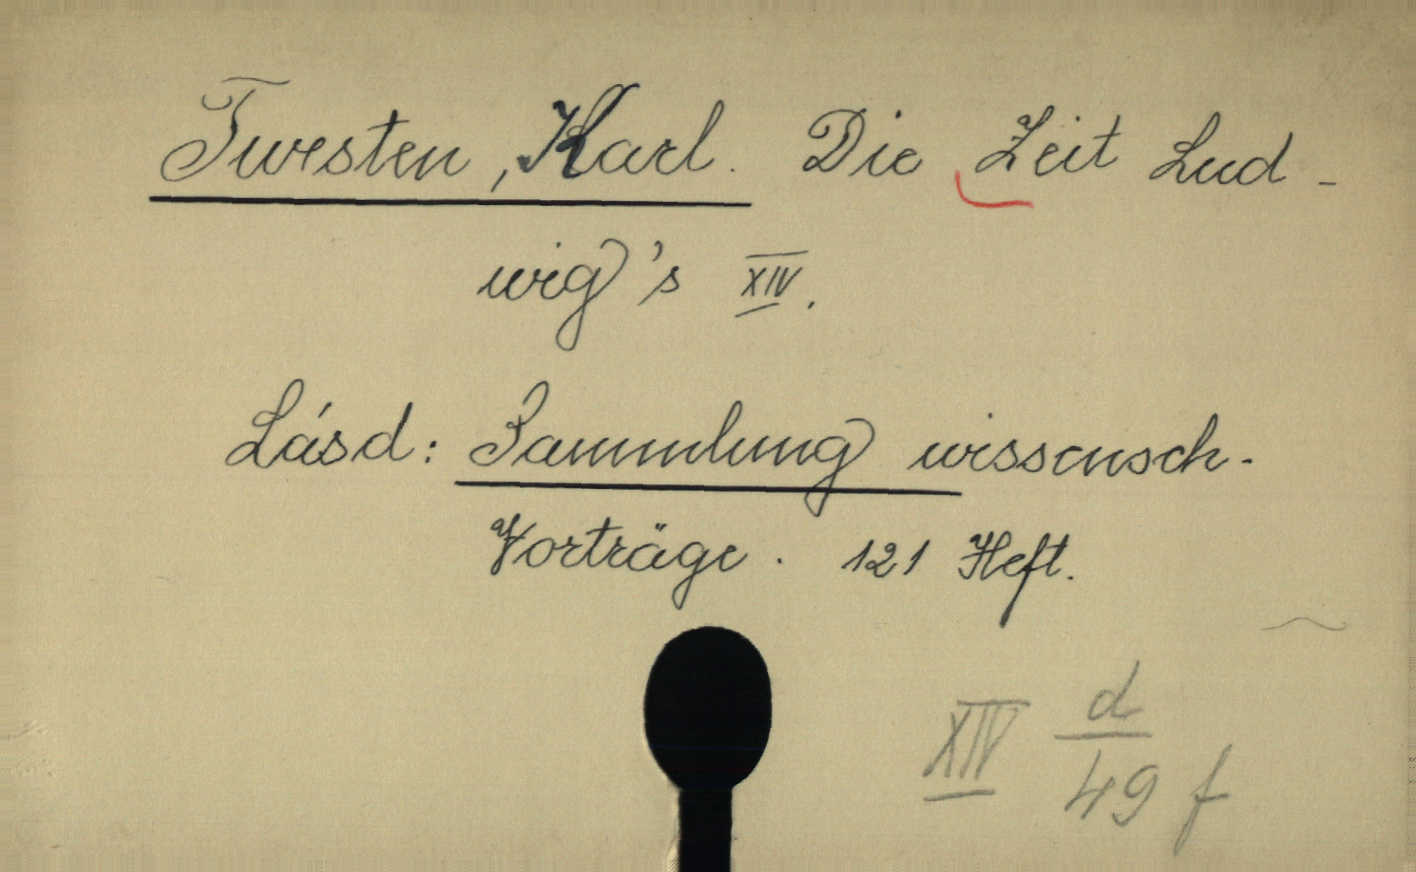 Twesten, Karl. Die Zeit Lud-
wig's XIV.
Lásd: Sammlung wissensch.
Vorträge. 121 Heft.
XIV d/49 f